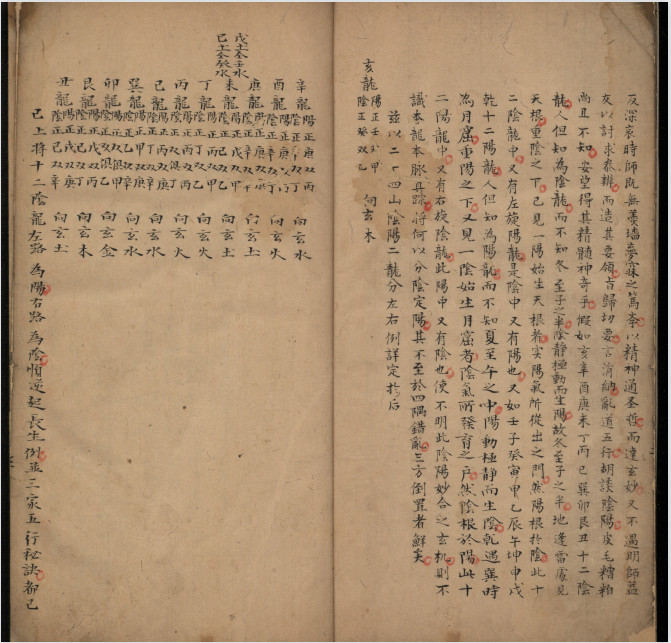 反深哀時師既無羹墻夢寐之篤奉以精神通圣哲而達玄妙又不遇明師葢
友以討求參辨而造其要領古歸切要言消納亂道五行胡談陰陽皮毛糟粕
尚且不知安望得其精髓神奇乎假如亥辛酉庚未丁丙巳巽卯艮丑十二陰
龍人但知為陰龍而不知冬至子之半陰靜極動而生陽故冬至子之半地逢雷處見
天根重陰之下已見一陽始生天根者实陽氣所從出之門然陽根扵陰此十
二陰龍中又有左旋陽龍是陰中又有陽也又如壬子癸寅甲乙辰午坤申戌
乾十二陽龍人但知為陽龍而不知夏至午之中陽動極靜而生陰乾遇巽時
為月窟重陽之下又見一陰始生月窟者陰氣所發育之户然陰根於陽此十
二陽龍中又有右旋陰龍此陽中又有陰也使不明此陰陽妙合之玄机則不
識本龍本脉再踪將何以分陰定陽其不至於四隅錯亂三方倒置者鮮矣
兹以二十四山陰陽二龍分左右例詳定扵后
亥龍 陽正壬双甲 陰正癸双乙 向玄木
戊土夲壬水
己土夲癸水
辛龍 陽正庚双丙 向玄水
酉龍 陽正庚双 向玄火
庚龍 陽正 陰正 向玄土
未龍 陽正 陰正 向玄土
丁龍 陽正 陰正 向玄火
丙龍 陽正 陰正 向玄火
巳龍 陽正 陰正 向玄水
巽龍 陽正 陰正 向玄水
卯龍 陽正 陰正 向玄金
艮龍 陽正 陰正 向玄木
丑龍 陽正 陰正 向玄土
已上將十二陰龍左路為陽右路為陰順逆起長生例並三家五行秘訣都已